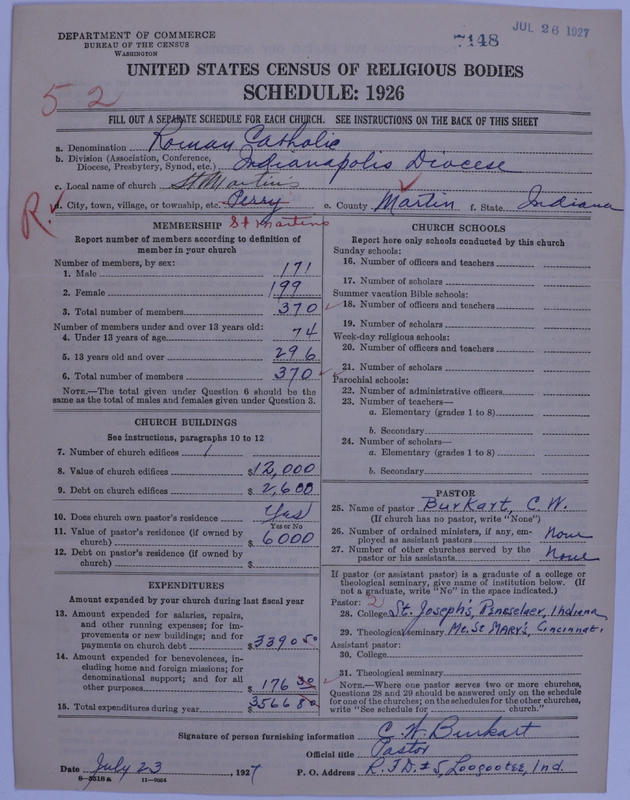 DEPARTMENT OF COMMERCE
BUREAU OF THE CENSUS
WASHINGTON
7148
JUL 26 1927
UNITED STATES CENSUS OF RELIGIOUS BODIES
SCHEDULE: 1926
52
FILL OUT A SEPARATE SCHEDULE FOR EACH CHURCH. SEE INSTRUCTIONS ON THE BACK OF THIS SHEET
a. Denomination Roman Catholic
b. Division (Association, Conference, Diocese, Presbytery, Synod, etc.) Indianapolis Diocese
c. Local name of church St Martin's
R.
d. City, town, village, or township, etc. Perry e. County Martin f. State Indiana
St Martins
MEMBERSHIP
Report number of members according to definition of member in your church
Number of members, by sex:
1. Male 171
2. Female 199
3. Total number of members 370
Number of members under and over 13 years old:
4. Under 13 years of age 74
5. 13 years old and over 296
6. Total number of members 370
NOTE.—The total given under Question 6 should be the same as the total of males and females given under Question 3.
CHURCH BUILDINGS
See instructions, paragraphs 10 to 12
7. Number of church edifices 1
8. Value of church edifices $12,000
9. Debt on church edifices $2,600
10. Does church own pastor's residence Yes
Yes or No
11. Value of pastor's residence (if owned by church) $6000
12. Debt on pastor's residence (if owned by church) $
EXPENDITURES
Amount expended by your church during last fiscal year
13. Amount expended for salaries, repairs, and other running expenses; for improvements or new buildings; and for payments on church debt $3390 50
14. Amount expended for benevolences, including home and foreign missions; for denominational support; and for all other purposes $176 30
15. Total expenditures during year $3566 80
CHURCH SCHOOLS
Report here only schools conducted by this church
Sunday schools:
16. Number of officers and teachers
17. Number of scholars
Summer vacation Bible schools:
18. Number of officers and teachers
19. Number of scholars
Week-day religious schools:
20. Number of officers and teachers
21. Number of scholars
Parochial schools:
22. Number of administrative officers
23. Number of teachers—
a. Elementary (grades 1 to 8)
b. Secondary
24. Number of scholars—
a. Elementary (grades 1 to 8)
b. Secondary
PASTOR
25. Name of pastor Burkart, C. W.
(If church has no pastor, write "None")
26. Number of ordained ministers, if any, employed as assistant pastors None
27. Number of other churches served by the pastor or his assistants None
If pastor (or assistant pastor) is a graduate of a college or theological seminary, give name of institution below. (If not a graduate, write "No" in the space indicated.)
Pastor: 2
28. College St. Joseph's, Rensselaer, Indiana
29. Theological seminary Mt. St Mary's, Cincinnati
Assistant pastor:
30. College
31. Theological seminary
NOTE.—Where one pastor serves two or more churches, Questions 28 and 29 should be answered only on the schedule for one of the churches; on the schedules for the other churches, write "See schedule for church."
Signature of person furnishing information C. W. Burkart
Official title Pastor
Date July 23, 1927 P. O. Address R. F. D. # 5, Loogootee, Ind.
8—5518a 11—9064